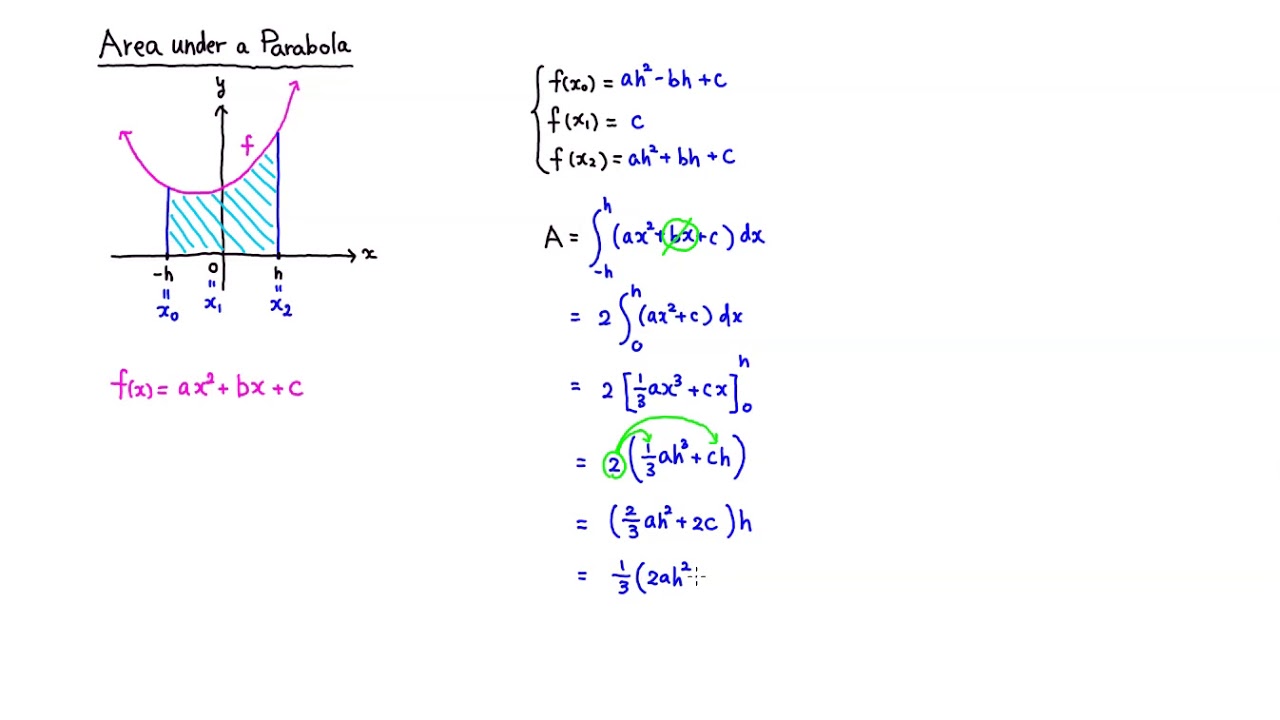 Area under a Parabola
y
f
x
-h 0 h
= = =
x₀ x₁ x₂
f(x) = ax² + bx + c
f(x₀) = ah² - bh + c
f(x₁) = c
f(x₂) = ah² + bh + c
A = ∫_{-h}^{h} (ax² + bx + c) dx
= 2 ∫_{0}^{h} (ax² + c) dx
= 2 [1/3 ax³ + cx]_{0}^{h}
= 2 (1/3 ah³ + ch)
= (2/3 ah² + 2c) h
= 1/3 (2ah² +